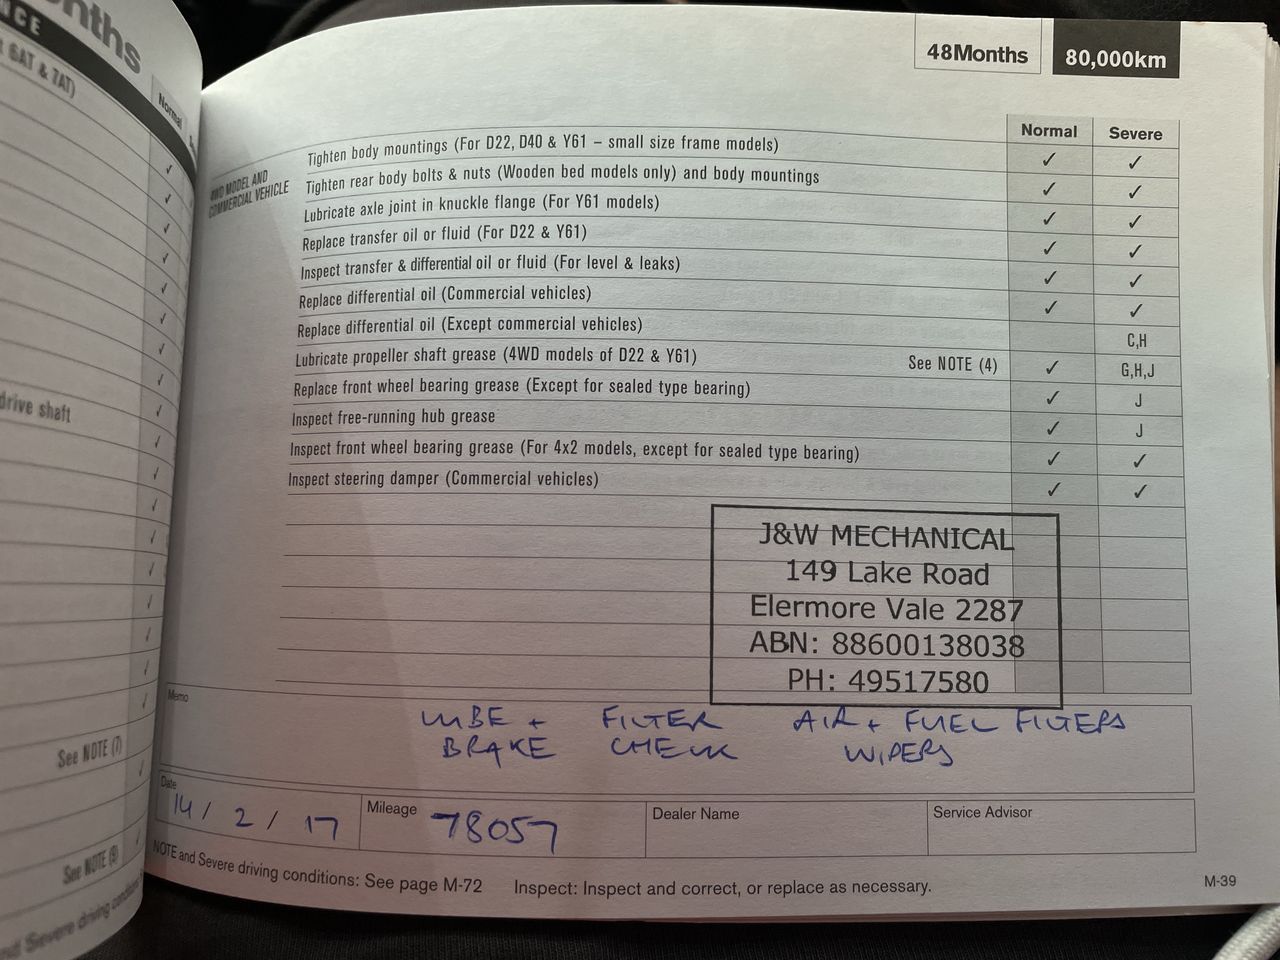 nths
NCE
GAT & TAT)
Normal
drive shaft
See NOTE (7)
See NOTE (9)
and Severe driving
48Months 80,000km
Normal Severe
4WD MODEL AND
COMMERCIAL VEHICLE
Tighten body mountings (For D22, D40 & Y61 – small size frame models) ✓ ✓
Tighten rear body bolts & nuts (Wooden bed models only) and body mountings ✓ ✓
Lubricate axle joint in knuckle flange (For Y61 models) ✓ ✓
Replace transfer oil or fluid (For D22 & Y61) ✓ ✓
Inspect transfer & differential oil or fluid (For level & leaks) ✓ ✓
Replace differential oil (Commercial vehicles) ✓ ✓
Replace differential oil (Except commercial vehicles) C,H
Lubricate propeller shaft grease (4WD models of D22 & Y61) See NOTE (4) ✓ G,H,J
Replace front wheel bearing grease (Except for sealed type bearing) ✓ J
Inspect free-running hub grease ✓ J
Inspect front wheel bearing grease (For 4x2 models, except for sealed type bearing) ✓ ✓
Inspect steering damper (Commercial vehicles) ✓ ✓
J&W MECHANICAL
149 Lake Road
Elermore Vale 2287
ABN: 88600138038
PH: 49517580
Memo
LUBE + FILTER AIR + FUEL FILTERS
BRAKE CHECK WIPERS
Date 14 / 2 / 17
Mileage 78057
Dealer Name
Service Advisor
NOTE and Severe driving conditions: See page M-72 Inspect: Inspect and correct, or replace as necessary.
M-39